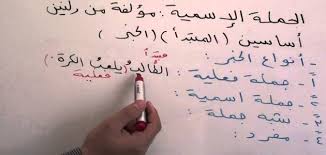 الجملة الاسمية : مؤلفة من ركنين
أساسين ( المبتدأ ) ( الخبر )
- أنواع الخبر :
مبتدأ
أ - جملة فعلية : الطالبُ ( يلعبُ الكرة . )
فعلية
٢ - جملة اسمية :
٣ - شبه جملة :
٤ - مفرد :